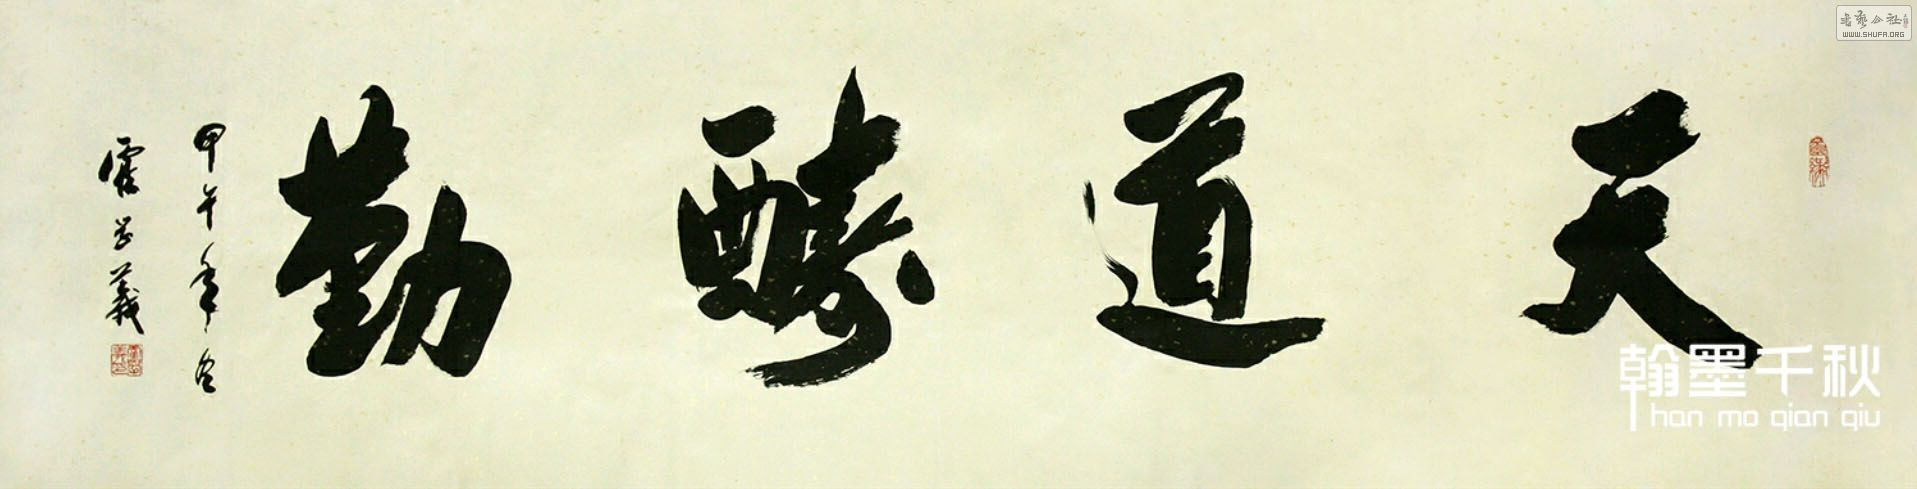 天道酬勤
甲午年
翰墨千秋
han mo qian qiu
WWW.SHUFA.ORG